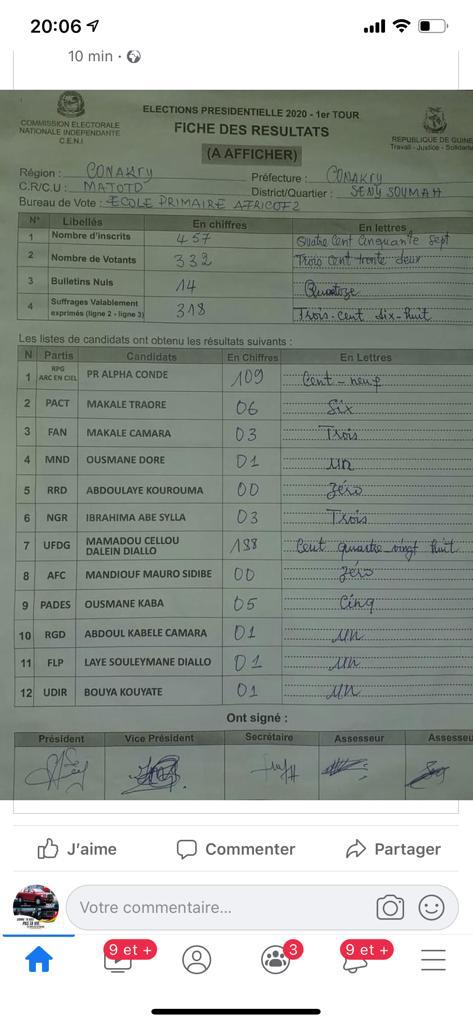 20:06
10 min ·
COMMISSION ELECTORALE
NATIONALE INDEPENDANTE
C.E.N.I
ELECTIONS PRESIDENTIELLE 2020 - 1er TOUR
FICHE DES RESULTATS
(A AFFICHER)
REPUBLIQUE DE GUINE
Travail - Justice - Solidarite
Région : CONAKRY
Préfecture : CONAKRY
C.R/C.U : MATOTO
District/Quartier : SENY SOUMAH
Bureau de Vote : ECOLE PRIMAIRE AFRICOF2
N° Libellés En chiffres En lettres
1 Nombre d'inscrits 457 Quatre Cent Cinquante sept
2 Nombre de Votants 332 Trois Cent trente deux
3 Bulletins Nuls 14 Quatoze
4 Suffrages Valablement exprimés (ligne 2 - ligne 3) 318 Trois-cent dix-huit
Les listes de candidats ont obtenu les résultats suivants :
N Partis Candidats En Chiffres En Lettres
1 RPG ARC EN CIEL PR ALPHA CONDE 109 Cent-neuf
2 PACT MAKALE TRAORE 06 Six
3 FAN MAKALE CAMARA 03 Trois
4 MND OUSMANE DORE 01 un
5 RRD ABDOULAYE KOUROUMA 00 zéro
6 NGR IBRAHIMA ABE SYLLA 03 Trois
7 UFDG MAMADOU CELLOU DALEIN DIALLO 188 Cent quastre-vingt huit
8 AFC MANDIOUF MAURO SIDIBE 00 zéro
9 PADES OUSMANE KABA 05 Cinq
10 RGD ABDOUL KABELE CAMARA 01 un
11 FLP LAYE SOULEYMANE DIALLO 01 un
12 UDIR BOUYA KOUYATE 01 un
Ont signé :
Président Vice Président Secrétaire Assesseur Assesseu
J'aime Commenter Partager
Votre commentaire...
9 et + 3 9 et +